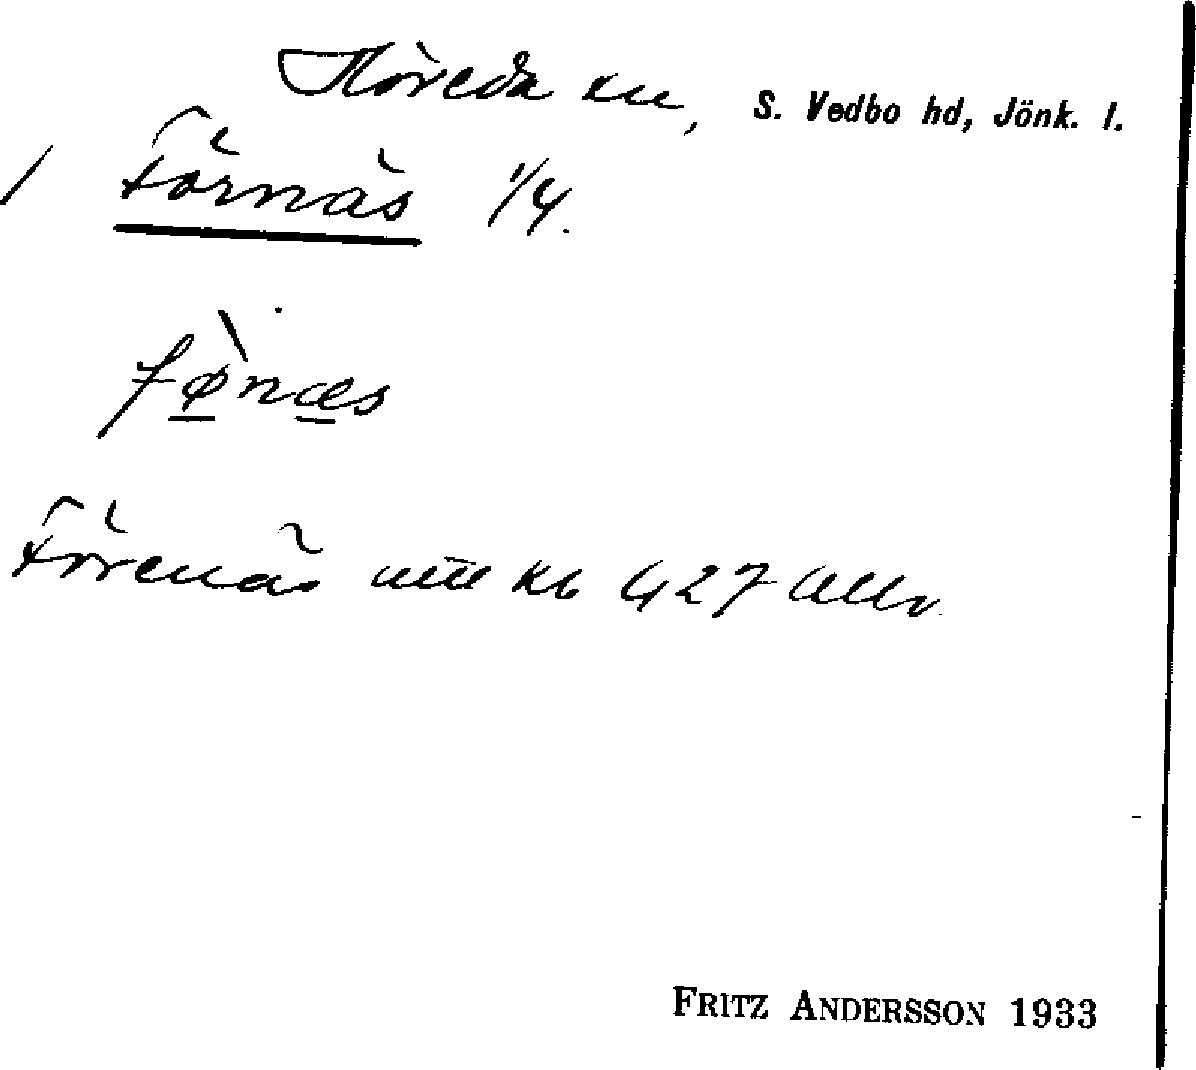 Höreda sn, S. Vedbo hd, Jönk. l.
/ Förnäs 1/4.
fø̀næs
Förenäs
427
FRITZ ANDERSSON 1933